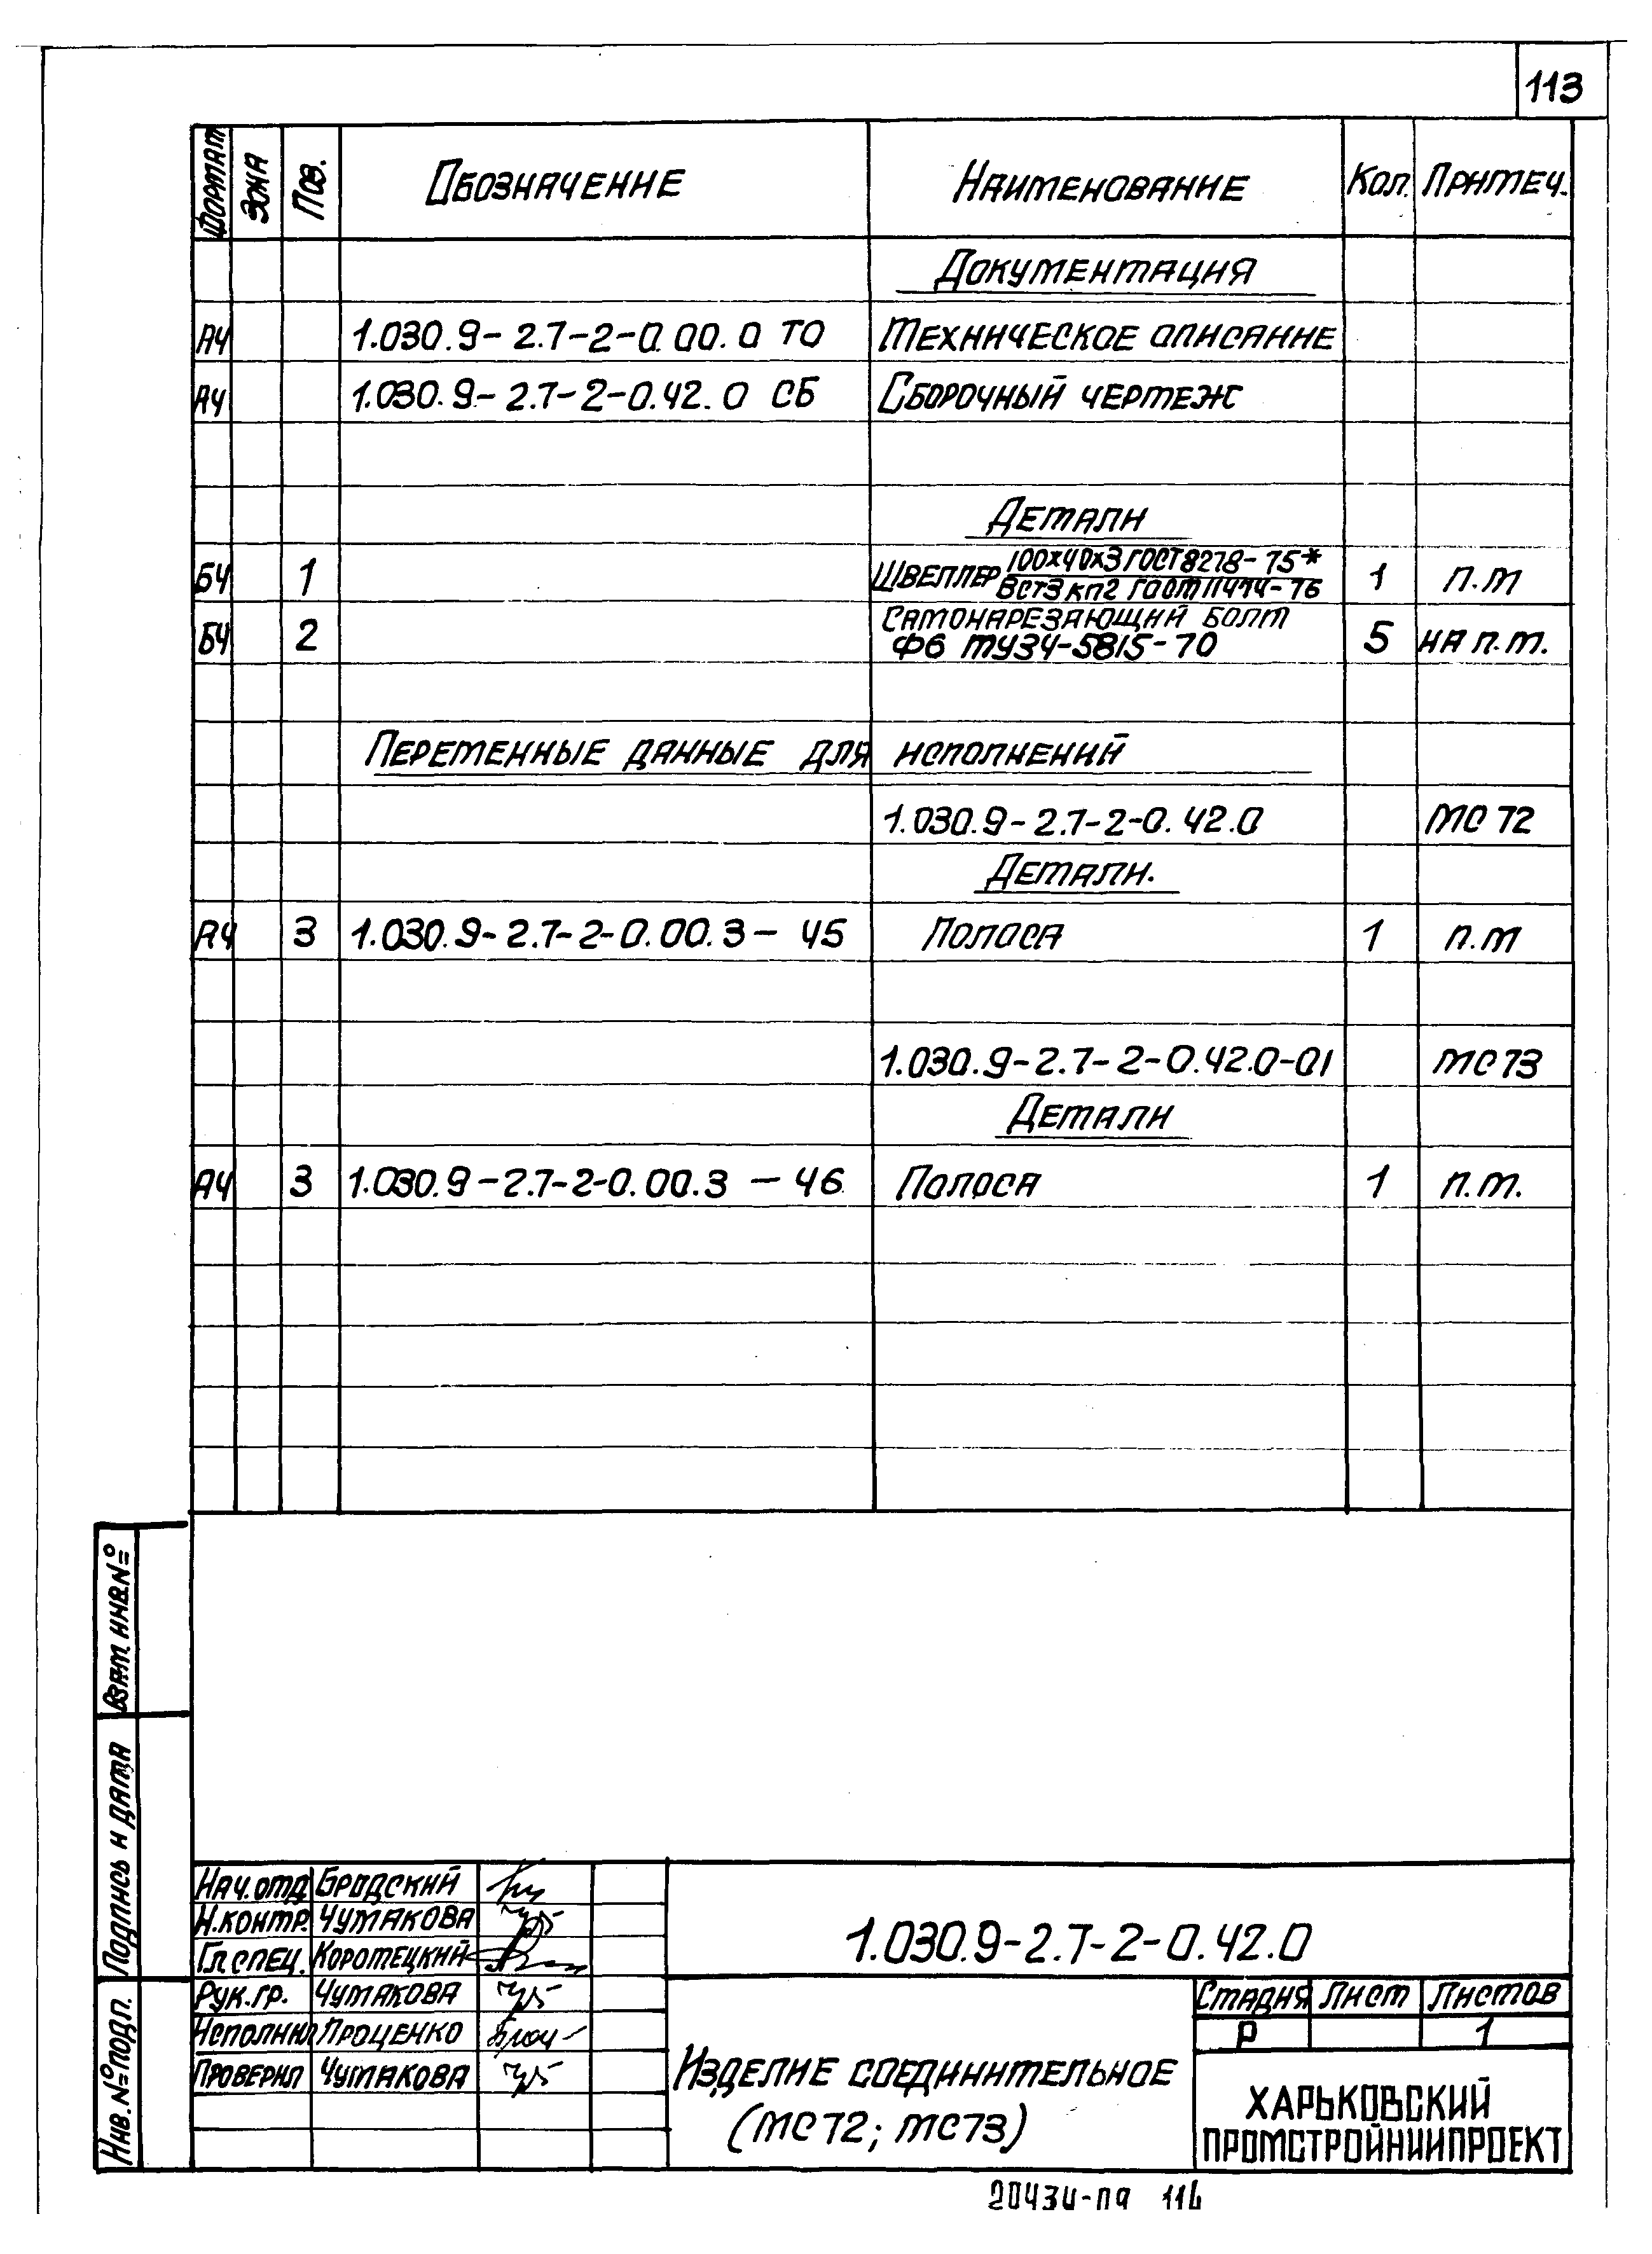 113
Формат Зона Поз. Обозначение Наименование Кол. Примеч.
Документация
А4 1.030.9-2.7-2-0.00.0 ТО Техническое описание
А4 1.030.9-2.7-2-0.42.0 СБ Сборочный чертеж
Детали
100х40х3 ГОСТ 8278-75*
БЧ 1 Швеллер 1 п.м
ВСт3кп2 ГОСТ 11474-76
Самонарезающий болт
БЧ 2 Ф6 ТУ34-5815-70 5 на п.м.
Переменные данные для исполнений
1.030.9-2.7-2-0.42.0 МС 72
Детали.
А4 3 1.030.9-2.7-2-0.00.3-45 Полоса 1 п.м
1.030.9-2.7-2-0.42.0-01 МС73
Детали
А4 3 1.030.9-2.7-2-0.00.3-46 Полоса 1 п.м.
Взам. инв. №
Подпись и дата
Инв. № подл.
Нач. отд Бродский
Н.контр. Чумакова
Гл.спец. Коротецкий
Рук.гр. Чумакова
Исполнил Проценко
Проверил Чумакова
1.030.9-2.7-2-0.42.0
Изделие соединительное
(МС72; МС73)
Стадия Лист Листов
Р 1
ХАРЬКОВСКИЙ
ПРОМСТРОЙНИИПРОЕКТ